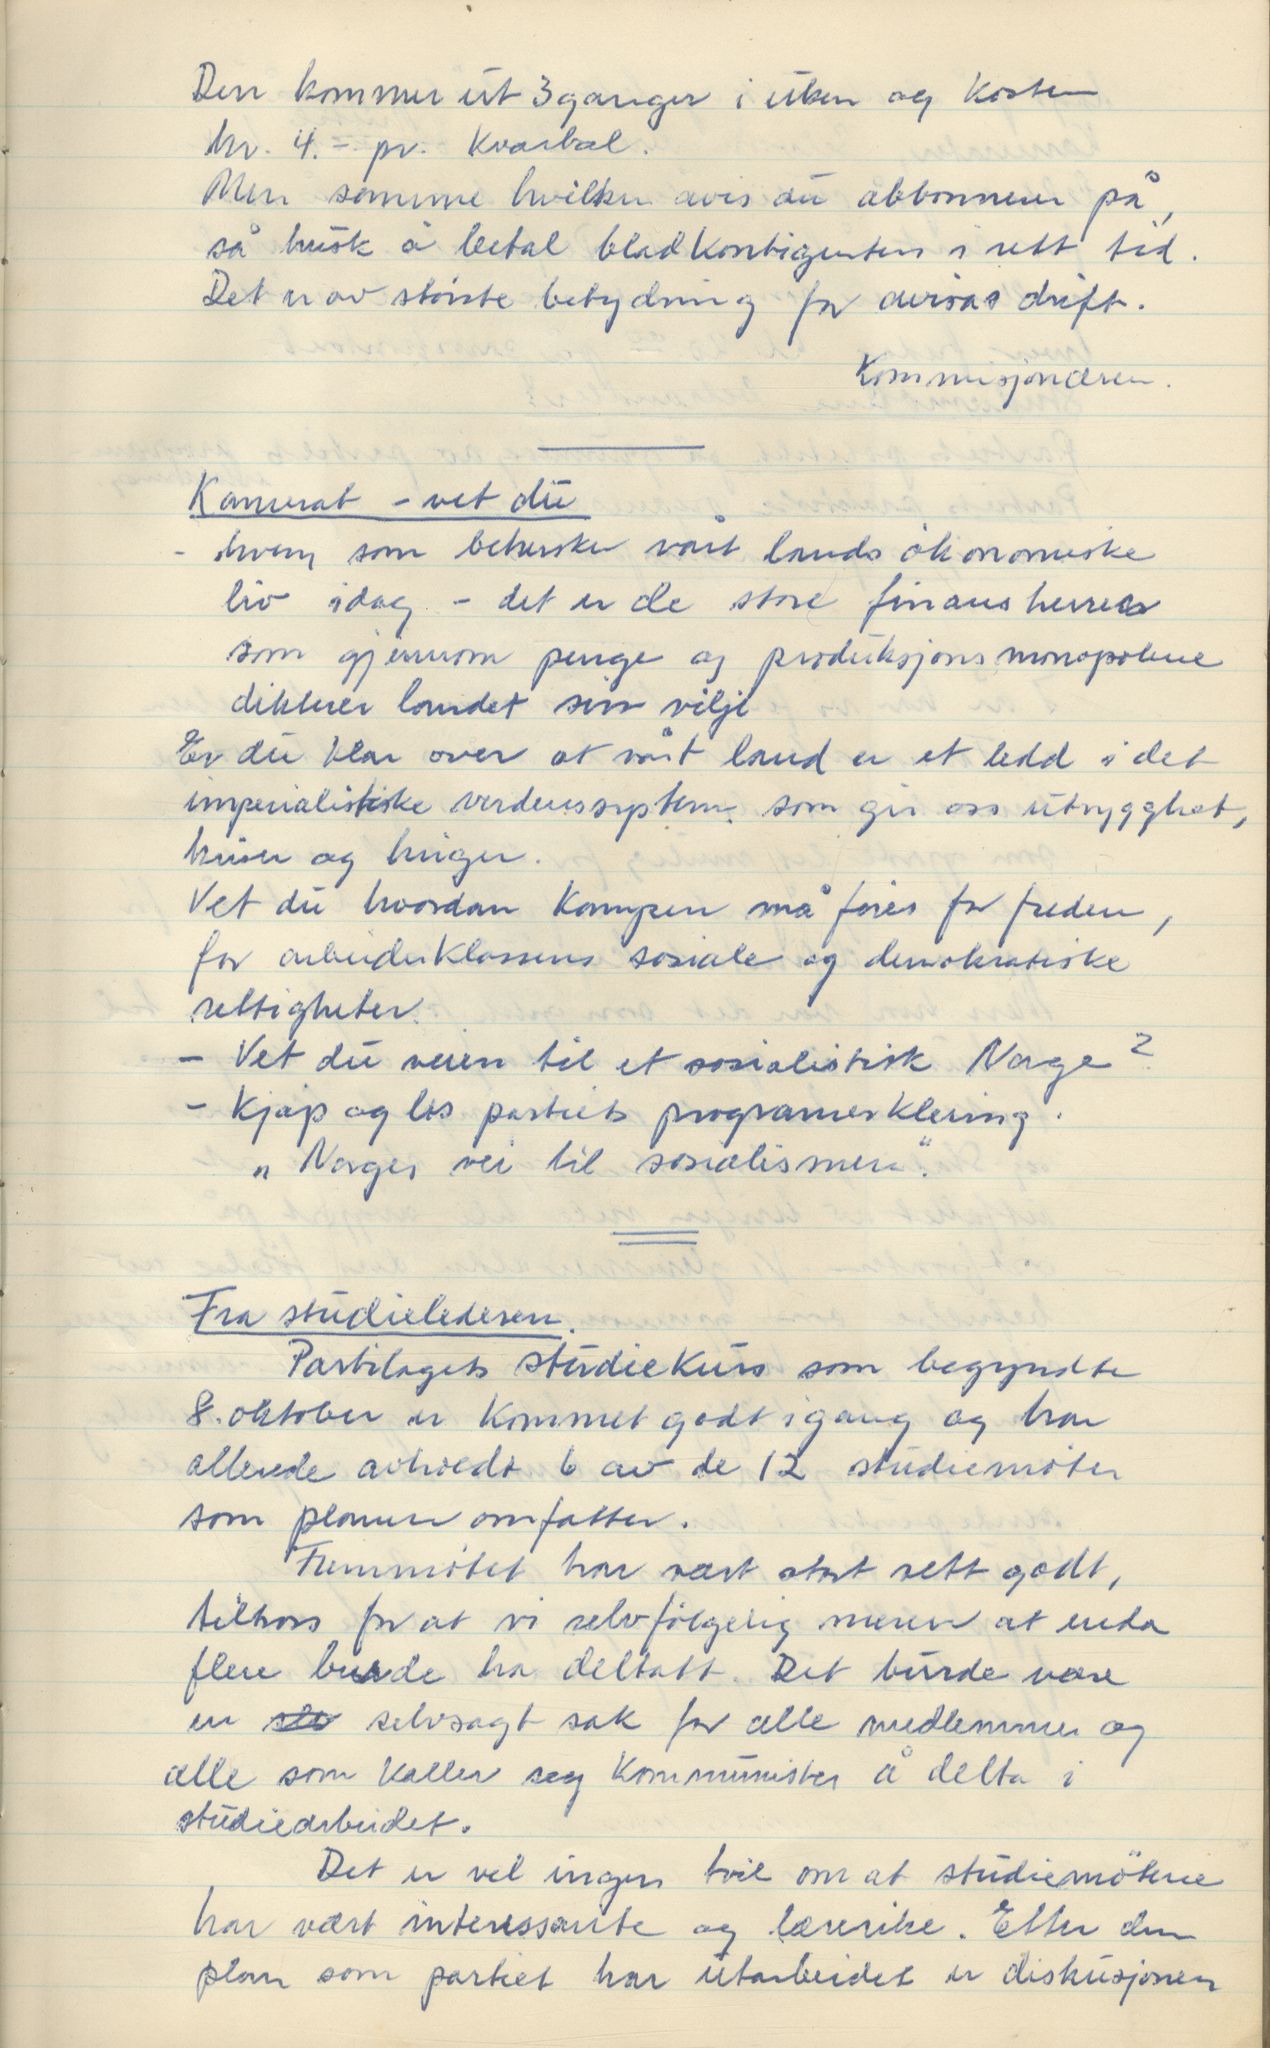 Den kommer ut 3 ganger i uken og koster
kr. 4.- pr. kvartal.
Men samme hvilken avis du abbonnerer på,
så husk å betal bladkontigenten i rett tid.
Det er av største betydning for avisas drift.
Kommisjonæren.
Kamerat - vet du
- hvem som behersker vårt lands økonomiske
liv idag - det er de store finansherrer
som gjennom penge og produksjonsmonopolene
dikterer landet sin vilje
Er du klar over at vårt land er et ledd i det
imperialistiske verdenssystem som gir oss utrygghet,
kriser og kriger.
Vet du hvordan kampen må føres for freden,
for arbeiderklassens sosiale og demokratiske
rettigheter.
- Vet du veien til et sosialistisk Norge?
- Kjøp og les partiets programerklering.
„Norges vei til sosialismen".
Fra studielederen.
Partilagets studiekurs som begyndte
8. oktober er kommet godt igang og har
allerede avholdt 6 av de 12 studiemøter
som planen omfatter.
Fremmøtet har vært stort sett godt,
tiltross for at vi selvfølgelig mener at enda
flere burde ha deltatt. Det burde være
en selvsagt sak for alle medlemmer og
alle som kaller seg kommunister å delta i
studiearbeidet.
Det er vel ingen tvil om at studiemøtene
har vært interessante og lærerike. Etter den
plan som partiet har utarbeidet er diskusjonen